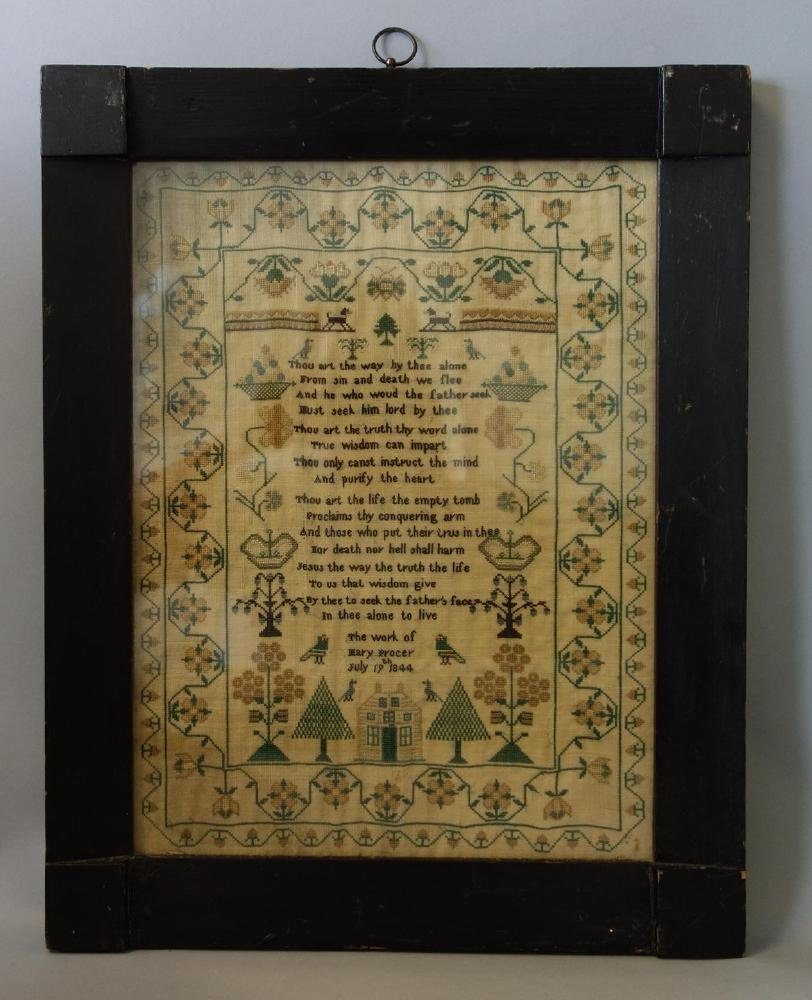 Thou art the way by thee alone
From sin and death we flee
And he who woud the father seek
Must seek him lord by thee
Thou art the truth thy word alone
True wisdom can impart
Thou only canst instruct the mind
And purify the heart
Thou art the life the empty tomb
Proclaims thy conquering arm
And those who put their trus in thee
Nor death nor hell shall harm
Jesus the way the truth the life
To us that wisdom give
By thee to seek the father's face
In thee alone to live
The work of
Mary Procer
July 19th 1844